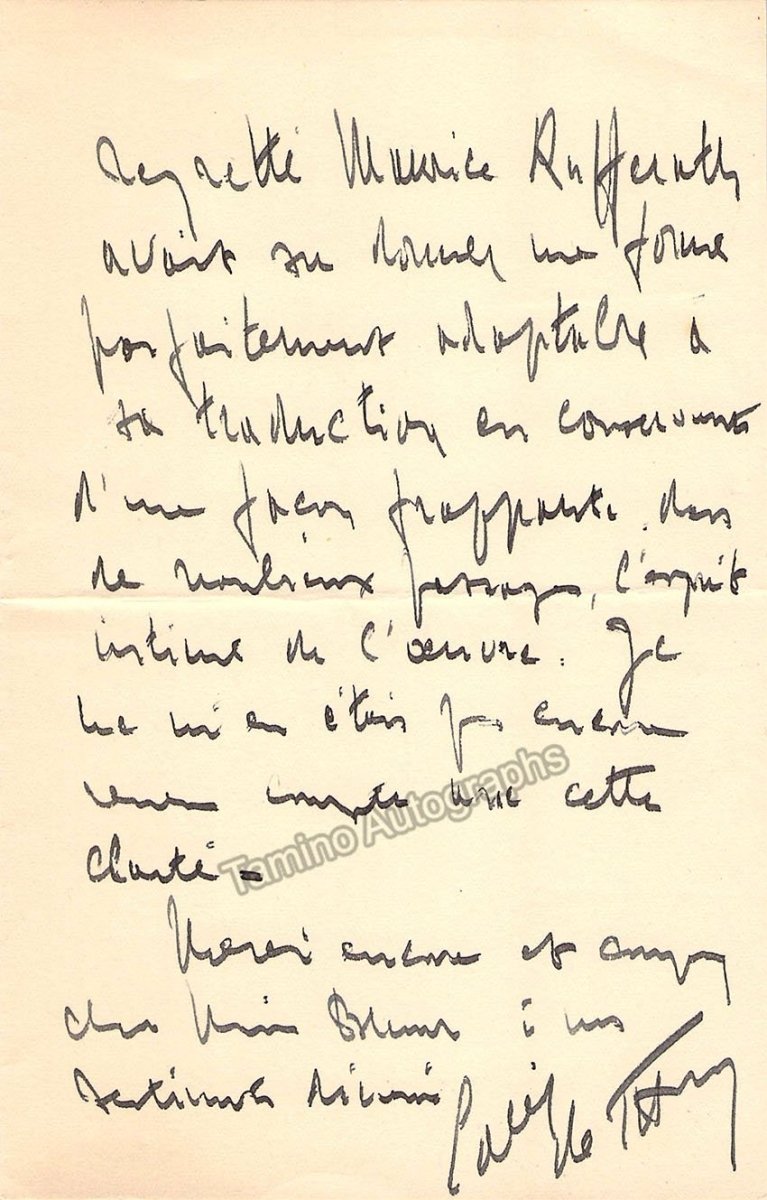 regretté Maurice Kufferath
avait su donner une forme
parfaitement adaptable à
sa traduction en conservant
d'une façon frappante, dans
de nombreux passages, l'esprit
intime de l'œuvre. Je
ne m'en étais pas encore
rendu compte avec cette
clarté =
Tamino Autographs
Merci encore et croyez
cher à mes
sentiments dévoués